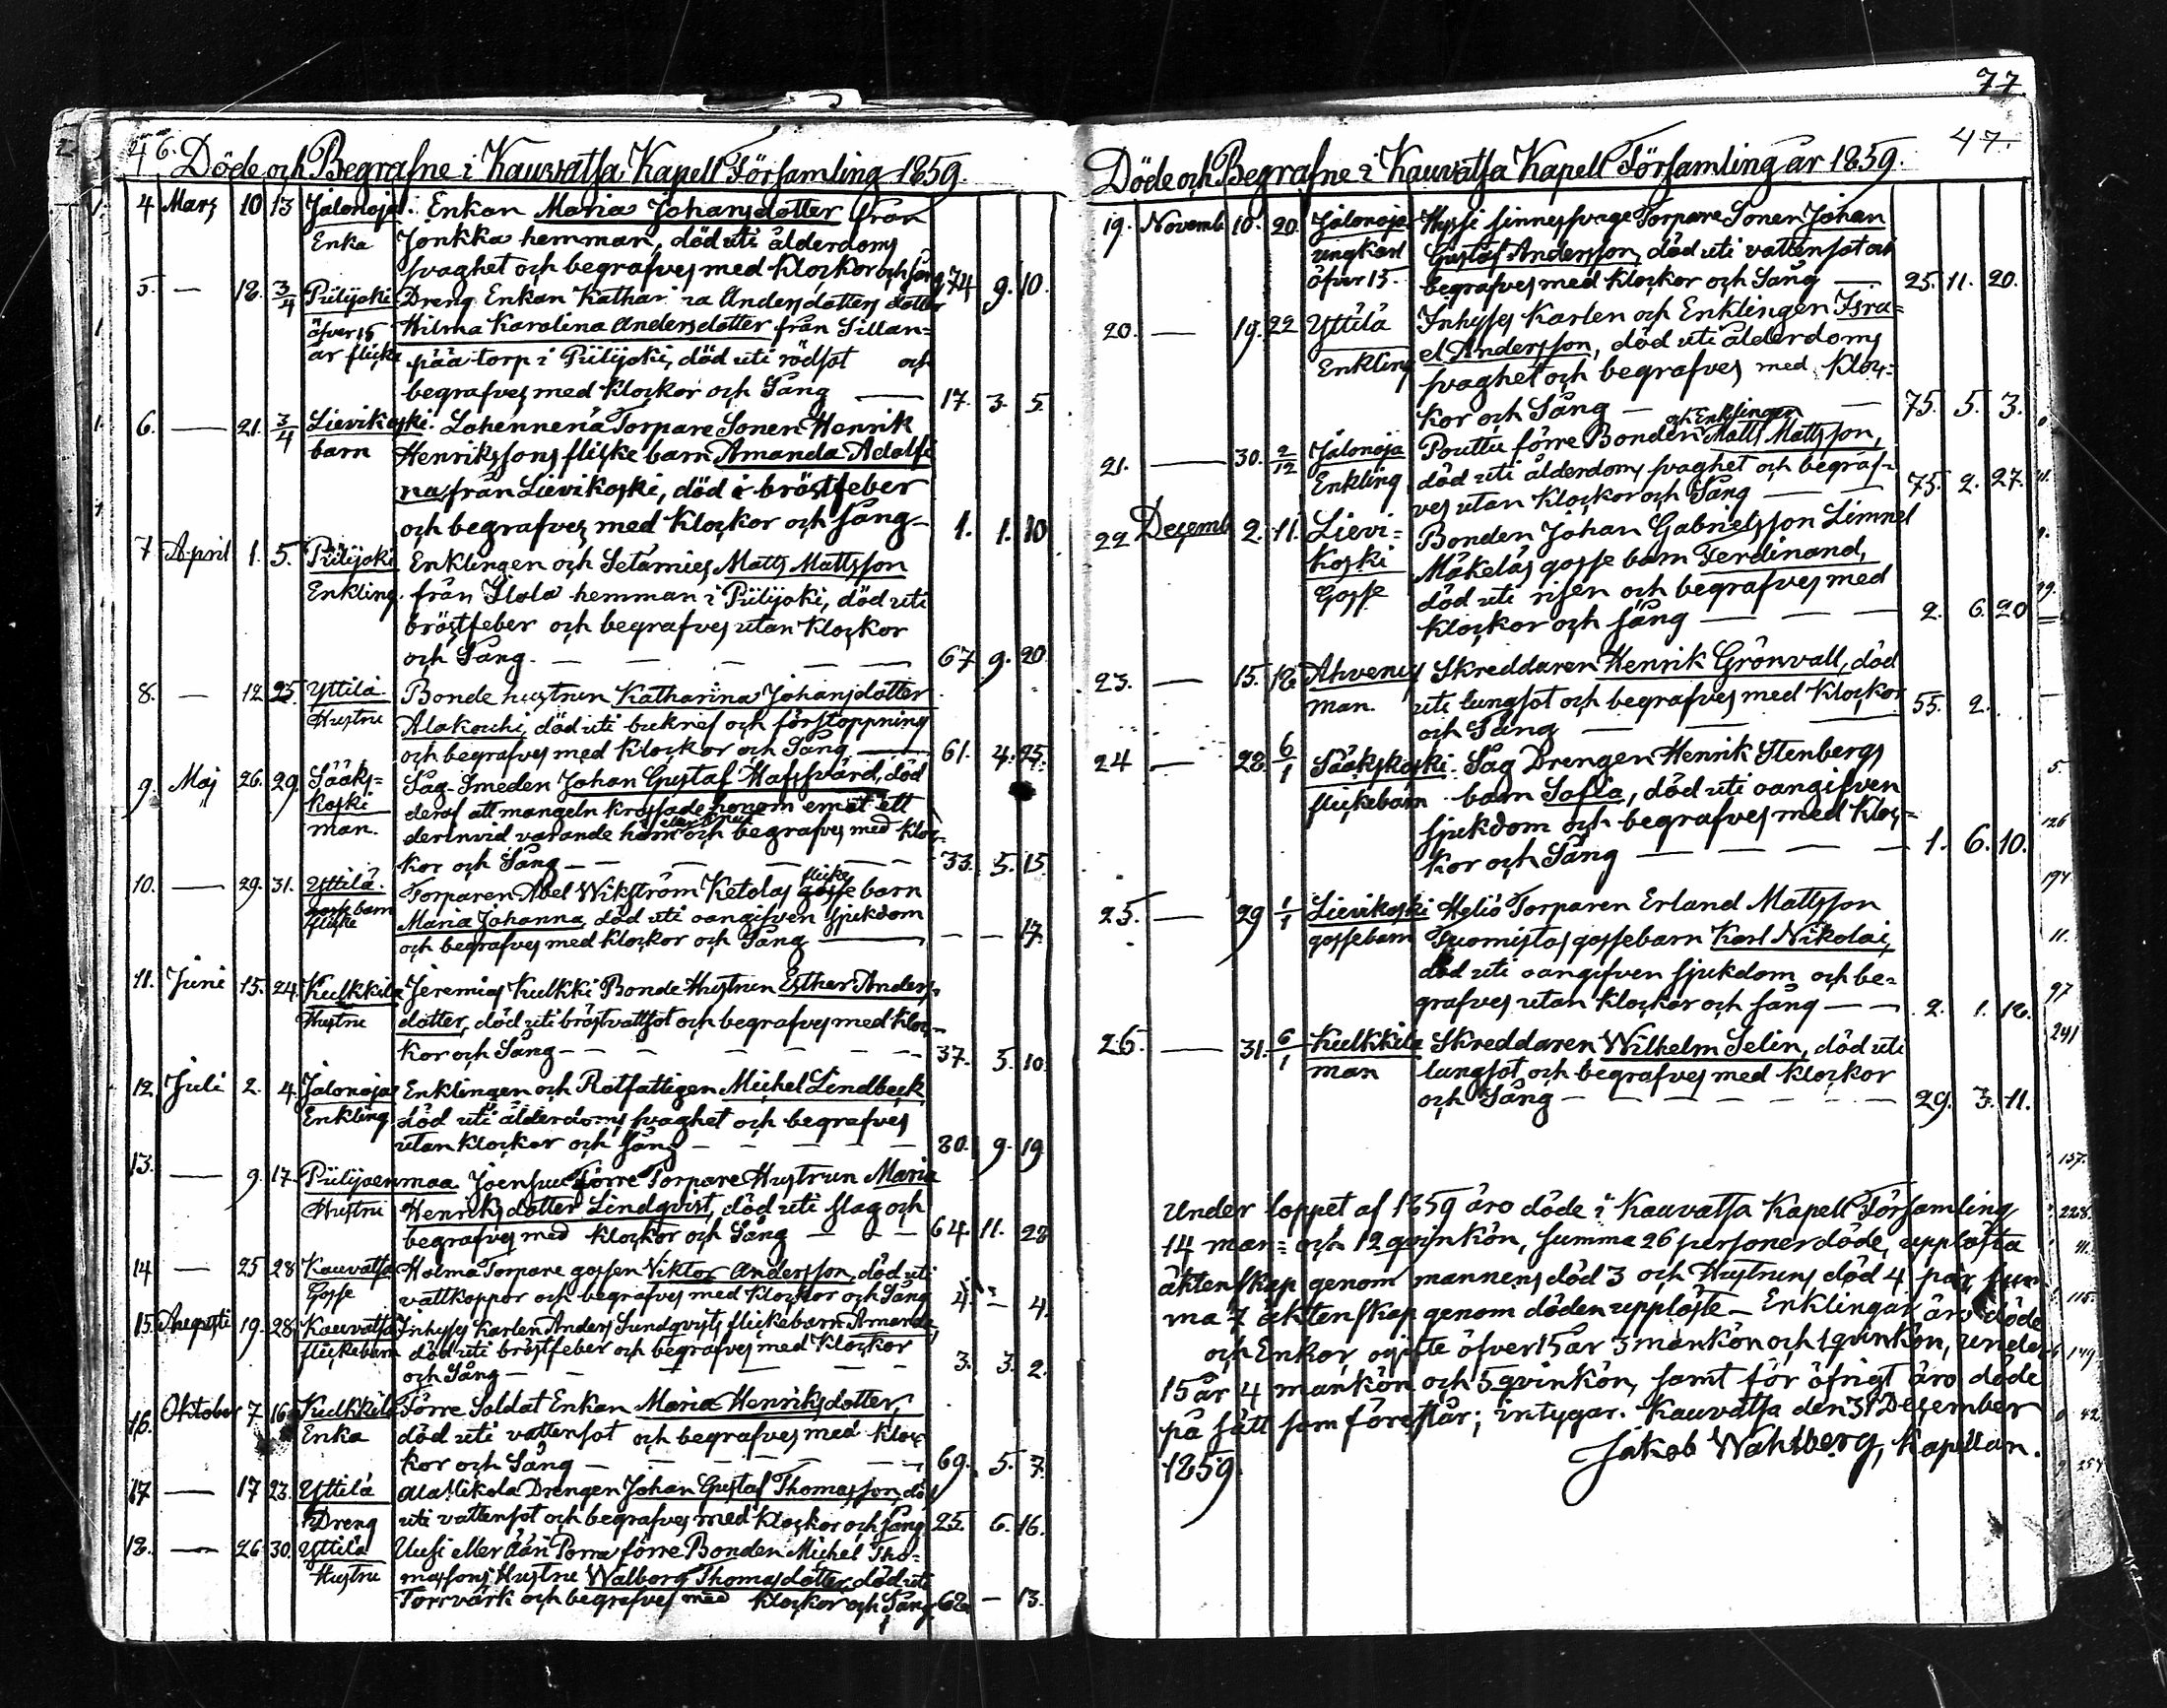 46.
Döde och Begrafne i Kauvatsa Kapell Församling 1859.
4 Mars 10 13 Jalonoja. Enkan Maria Johansdotter från
Enka Jonkka hemman, död uti ålderdoms
svaghet och begrafves med klockor och sång 74 9. 10.
5. — 18. 3/4 Piilijoki Dreng Enkan Katharina Andersdotters dotter
öfver 15 Hilma Karolina Andersdotter från Sillan=
år flicka pää torp i Piilijoki, död uti rödsot och
begrafves med klockor och Sång — 17. 3. 5.
6. — 21. 3/4 Lievikoski. Lohennenä Torpare Sonen Henrik
barn Henrikssons flicke barn Amanda Adolfi
na, från Lievikoski, död i bröstfeber
och begrafves med klockor och sång — 1. 1. 10
7 April 1. 5. Piilijoki Enklingen och Setämies Matts Mattsson
Enkling. från Ylola hemman i Piilijoki, död uti
bröstfeber och begrafves utan klockor
och Sång. — — — — — 67 9. 20
8. — 12 25. Yttilä Bonde hustrun Katharina Johansdotter
Hustru Alakouhi, död uti bukref och förstoppning
och begrafves med klockor och Sång — 61. 4. 25.
9. Maj 26. 29. Sääks= Såg-Smeden Johan Gustaf Hafssvärd, död
koski deraf att mangeln krossade honom emot ett
man. derinvid varande hörn och begrafves med kloc-
kor och Sång — — — — — 33. 5. 15.
10. — 29. 31. Yttilä. Torparen Abel Wikström Ketolas flicke barn
flicke Maria Johanna, död uti oangifven sjukdom
och begrafves med klockor och Sång — — — 17.
11. Juni 15. 24. Kulkkila Jeremias Kulkki Bonde Hustrun Esther Anders-
Hustru dotter, död uti bröstvattsot och begrafves med kloc-
kor och Sång — — — — — — 37. 5. 10
12. Juli 2. 4. Jalonoja Enklingen och Rotfattigen Michel Lindbeck
Enkling död uti ålderdoms svaghet och begrafves
utan klockor och Sång — — — — 80. 9. 19
13. — 9. 17. Piilijoenmaa Joensuu förre Torpare Hustrun Maria
Hustru Henriksdotter Lindqvist, död uti slag och
begrafves med klockor och Sång — — — 64. 11. 28
14 — 25 28 Kauvatsa Holma Torpare gossen Viktor Andersson, död uti
Gosse vattkoppor och begrafves med klockor och Sång 4. — 4.
15. Augusti 19. 28. Kauvatsa Inhyses Karlen Anders Sundqvists flickebarn Amanda,
flickebarn död uti bröstfeber och begrafves med klockor
och Sång — — — — — 3. 3. 2.
16. Oktober 7 16 Kulkkila Förre Soldat Enkan Maria Henriksdotter,
Enka död uti vattensot och begrafves med kloc
kor och Sång — — — — — 69. 5. 7.
17 — 17 23. Yttilä Ala Nikola Drengen Johan Gustaf Thomasson, död
Dreng uti vattensot och begrafves med klockor och sång 25. 6. 16.
18. — 26 30. Yttilä Uusi eller Ääri Porra förre Bonden Michel Tho=
Hustru massons Hustru Walborg Thomasdotter, död uti
Torrvärk och begrafves med klockor och Sång 62 — 13.
77
47.
Döde och Begrafne i Kauvatsa Kapell Församling år 1859.
19. Novemb 10. 20. Jalonoja Hyssi sinnessvage Torpare Sonen Johan
ungkarl Gustaf Andersson, död uti vattensot och
öfver 15. begrafves med klockor och Sång — 25. 11. 20.
20. — 19. 22 Yttilä Inhyses Karlen och Enklingen Isra=
Enkling el Andersson, död uti ålderdoms
svaghet och begrafves med kloc=
kor och Sång — — 75. 5. 3.
och Enklingen
21. — 30. 2/12 Jalonoja Pouttu förre Bonden Matts Mattsson,
Enkling död uti ålderdoms svaghet och begraf=
ves utan klockor och Sång — — 75. 2. 27.
22 Decemb 2. 11. Lievi= Bonden Johan Gabrielsson Limnel
koski Mäkeläs gosse barn Ferdinand,
Gosse död uti risen och begrafves med
klockor och sång — — — 2. 6. 20
23. — 15. 18. Ahvenus Skreddaren Henrik Grönvall, död
man. uti lungsot och begrafves med klockor
och Sång — — — 55. 2.
24 — 28. 6/1 Sääkskoski. Såg Drengen Henrik Stenbergs
flickebarn barn Sofia, död uti oangifven
sjukdom och begrafves med kloc=
kor och Sång — — — — — 1. 6. 10.
25. — 29 1/1 Lievikoski Heliö Torparen Erland Mattsson
gossebarn Tuomistos gossebarn Karl Nikolai,
död uti oangifven sjukdom och be=
grafves utan klockor och sång — — 2. 1. 18.
26. — 31. 6/1 Kulkkila Skreddaren Wilhelm Selin, död uti
man lungsot, och begrafves med klockor
och Sång — — — — — — 29. 3. 11.
Under loppet af 1859 äro döde i Kauvatsa Kapell Församling
14 man= och 12 qvinkön, summa 26 personer döde, upplösta
äktenskap genom mannens död 3 och Hustruns död 4 par, sum=
ma 7 äktenskap genom döden upplöste — Enklingar äro döde
och Enkor, ogifte öfver 15 år 3 mankön och 1 qvinkön, under
15 år 4 mankön och 5 qvinkön, samt för öfrigt äro döde
på sätt som föreslår; intygar. Kauvatsa den 31 December
1859. Jakob Wahlberg, Kapellan.